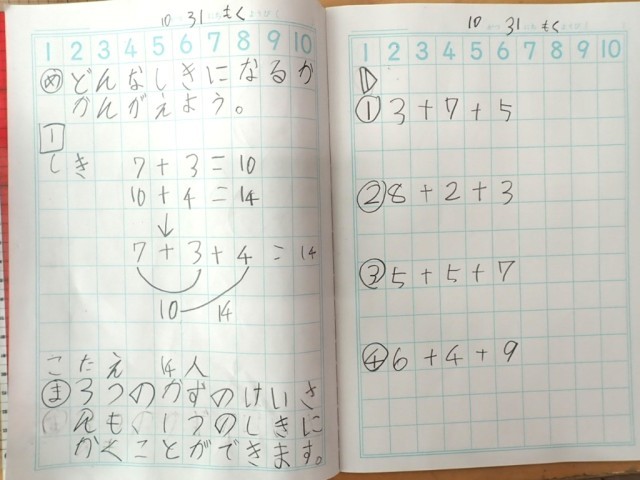 10 31 もく
1 2 3 4 5 6 7 8 9 10
め どんなしきになるか
かんがえよう。
1
しき 7+3=10
10+4=14
↓
7+3+4=14
10 14
こたえ 14人
ま 3つのかずのけいさ
んも1つのしきに
かくことができます。
10 31 もく
1 2 3 4 5 6 7 8 9 10
① 3+7+5
② 8+2+3
③ 5+5+7
④ 6+4+9